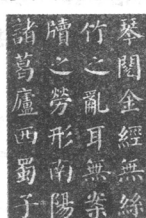 琴閱金經無絲
竹之亂耳無案
牘之勞形南陽
諸葛廬西蜀子